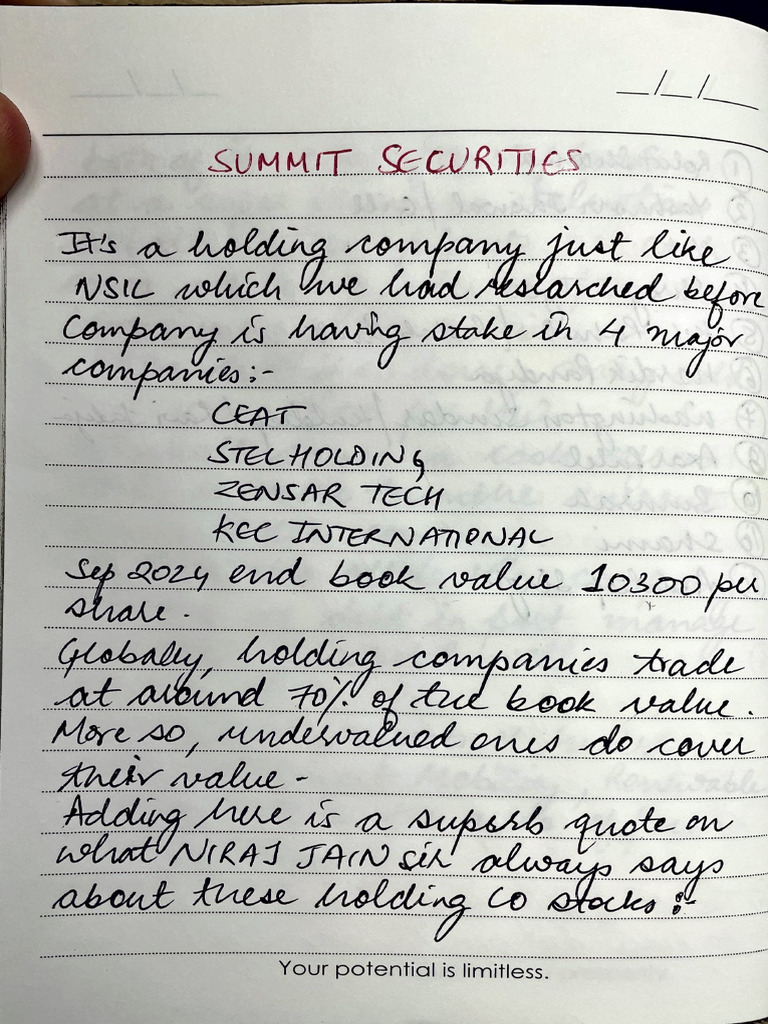 __/__/__
SUMMIT SECURITIES
It's a holding company just like
NSIL which we had researched before
Company is having stake in 4 major
companies:-
CEAT
STEL HOLDING
ZENSAR TECH
KEC INTERNATIONAL
Sep 2024 end book value 10300 per
share.
Globally, holding companies trade
at around 70% of the book value.
More so, undervalued ones do cover
their value -
Adding here is a superb quote on
what NIRAJ JAIN sir always says
about these holding co stocks :-
Your potential is limitless.